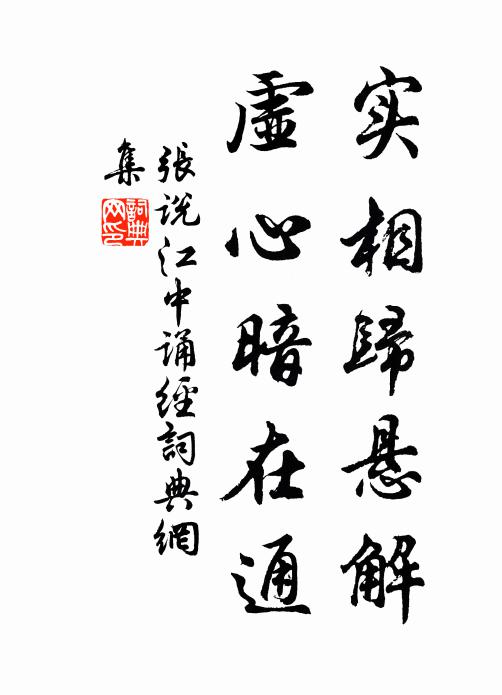 实相歸悬解
虚心暗在通
張说江中誦經詞典網
集
詞典网印